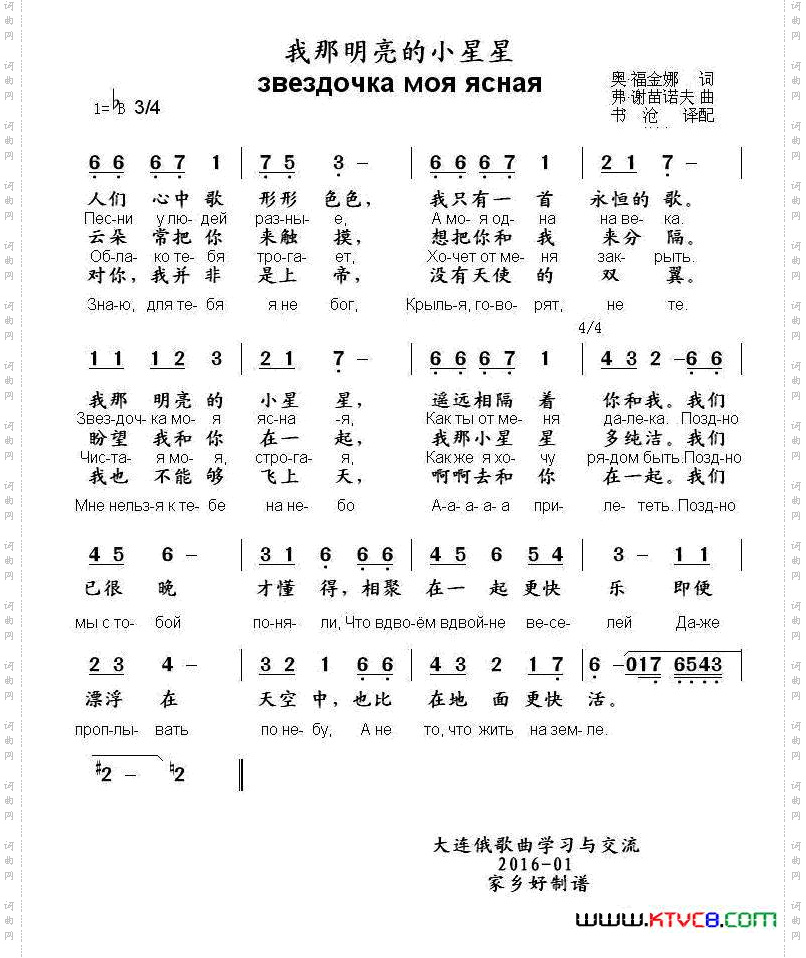 我那明亮的小星星
звездочка моя ясная
奥·福金娜 词
弗·谢苗诺夫 曲
书 沧 译配
1=♭B 3/4
6 6 6 7 1 | 7 5 3 – | 6 6 6 7 1 | 2 1 7 – |
人们 心中 歌 形形 色色, 我只有一 首 永恒的 歌。
Пес-ни у лю-дей раз-ны- е, А мо- я од- на на ве- ка.
云朵 常把 你 来触 摸, 想把你和 我 来分 隔。
Об-ла- ко те-бя тро-га- ет, Хо-чет от ме- ня зак- рыть.
对你,我并 非 是上 帝, 没有天使 的 双 翼。
Зна-ю, для те-бя я не бог, Крыль-я, го-во- рят, не те.
4/4
1 1 1 2 3 | 2 1 7 – | 6 6 6 7 1 | 4 3 2 – 6 6 |
我那 明亮 的 小星 星, 遥远相隔 着 你和我。我们
Звез-доч- ка мо- я яс-на -я, Как ты от ме- ня да-ле-ка. Позд-но
盼望 我和 你 在一 起, 我那小星 星 多纯洁。我们
Чис-та- я мо- я, стро-га- я, Как же я хо- чу ря-дом быть.Позд-но
我也 不能 够 飞上 天, 啊啊去和 你 在一起。我们
Мне нельз-я к те- бе на не- бо А-а- а- а при- ле- теть. Позд-но
4 5 6 – | 3 1 6 6 6 | 4 5 6 5 4 | 3 – 1 1 |
已很 晚 才懂 得,相聚 在一 起 更快 乐 即便
мы с то- бой по-ня- ли, Что вдво-ём вдвой-не ве-се- лей Да-же
2 3 4 – | 3 2 1 6 6 | 4 3 2 1 7 | 6 – 017 6543 |
漂浮 在 天空 中,也比 在地 面 更快 活。
проп-лы- вать по не- бу, А не то, что жить на зем- ле.
#2 – ♮2
大连俄歌曲学习与交流
2016-01
家乡好制谱
www.KTVC8.com
词曲网
词曲网